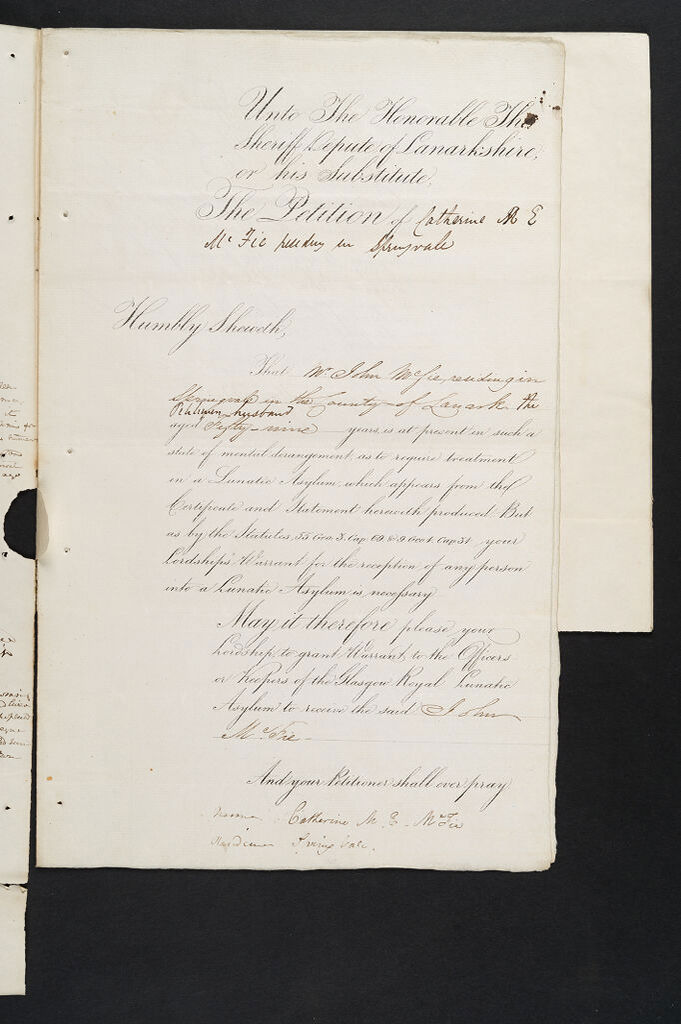 Unto The Honorable The
Sheriff Depute of Lanarkshire,
or his Substitute,
The Petition of Catherine M E
Mc Fie residing in Springvale
Humbly Sheweth,
That Mr. John McFie, residing in
Springvale in the County of Lanark the
Petitioners husband
aged Fifty-nine years, is at present in such a
state of mental derangement, as to require treatment
in a Lunatic Asylum, which appears from the
Certificate and Statement herewith produced. But
as by the Statutes, 55 Geo. 3. Cap. 69 & 9 Geo 4. Cap 34 your
Lordship's Warrant for the reception of any person
into a Lunatic Asylum is, necessary
May it therefore please your
Lordship, to grant Warrant, to the Officers
or Keepers of the Glasgow Royal Lunatic
Asylum to receive the said John
McFie -
And your Petitioner shall ever pray
Name Catherine M. E. McFie
Residence Spring Vale.